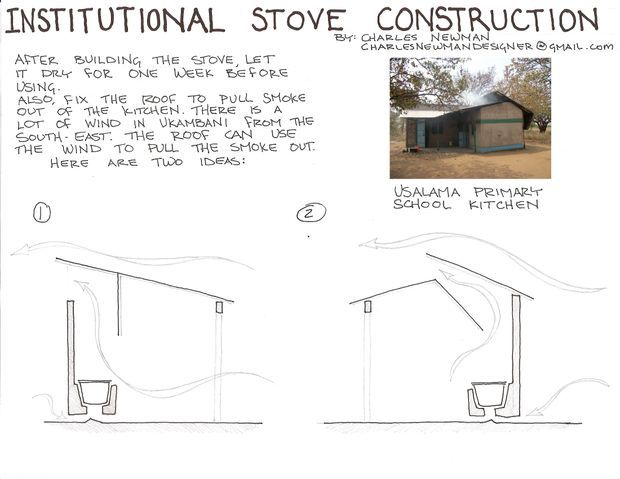 INSTITUTIONAL STOVE CONSTRUCTION
BY: CHARLES NEWMAN
CHARLESNEWMANDESIGNER@GMAIL.COM
AFTER BUILDING THE STOVE, LET
IT DRY FOR ONE WEEK BEFORE
USING.
ALSO, FIX THE ROOF TO PULL SMOKE
OUT OF THE KITCHEN. THERE IS A
LOT OF WIND IN UKAMBANI FROM THE
SOUTH-EAST. THE ROOF CAN USE
THE WIND TO PULL THE SMOKE OUT.
HERE ARE TWO IDEAS:
USALAMA PRIMARY
SCHOOL KITCHEN
1
2